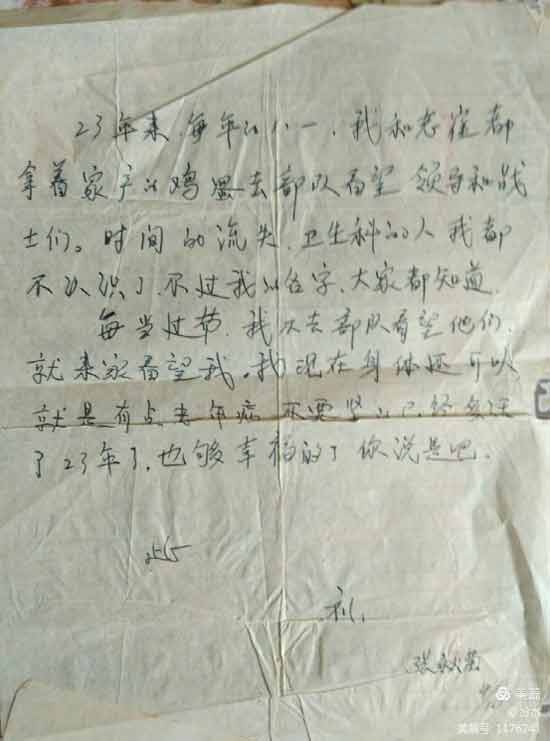 23年来,每年的八一,我和老崔都
拿着家产的鸡蛋去部队看望领导和战
士们。时间的流失,卫生科的人我都
不认识了,不过我的名字,大家都知道,
每当过节,我不去部队看望他们,
就来家看望我。我现在身体还可以
就是有点老年病 不要紧的已经多活
了23年了,也够幸福的了你说是吧。
此致
礼
张秋菊
美篇
美篇号